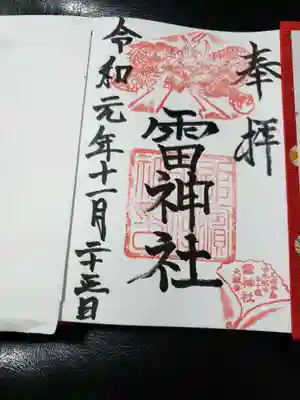 奉拝
雷神社
令和元年十一月二十三日
雷神社